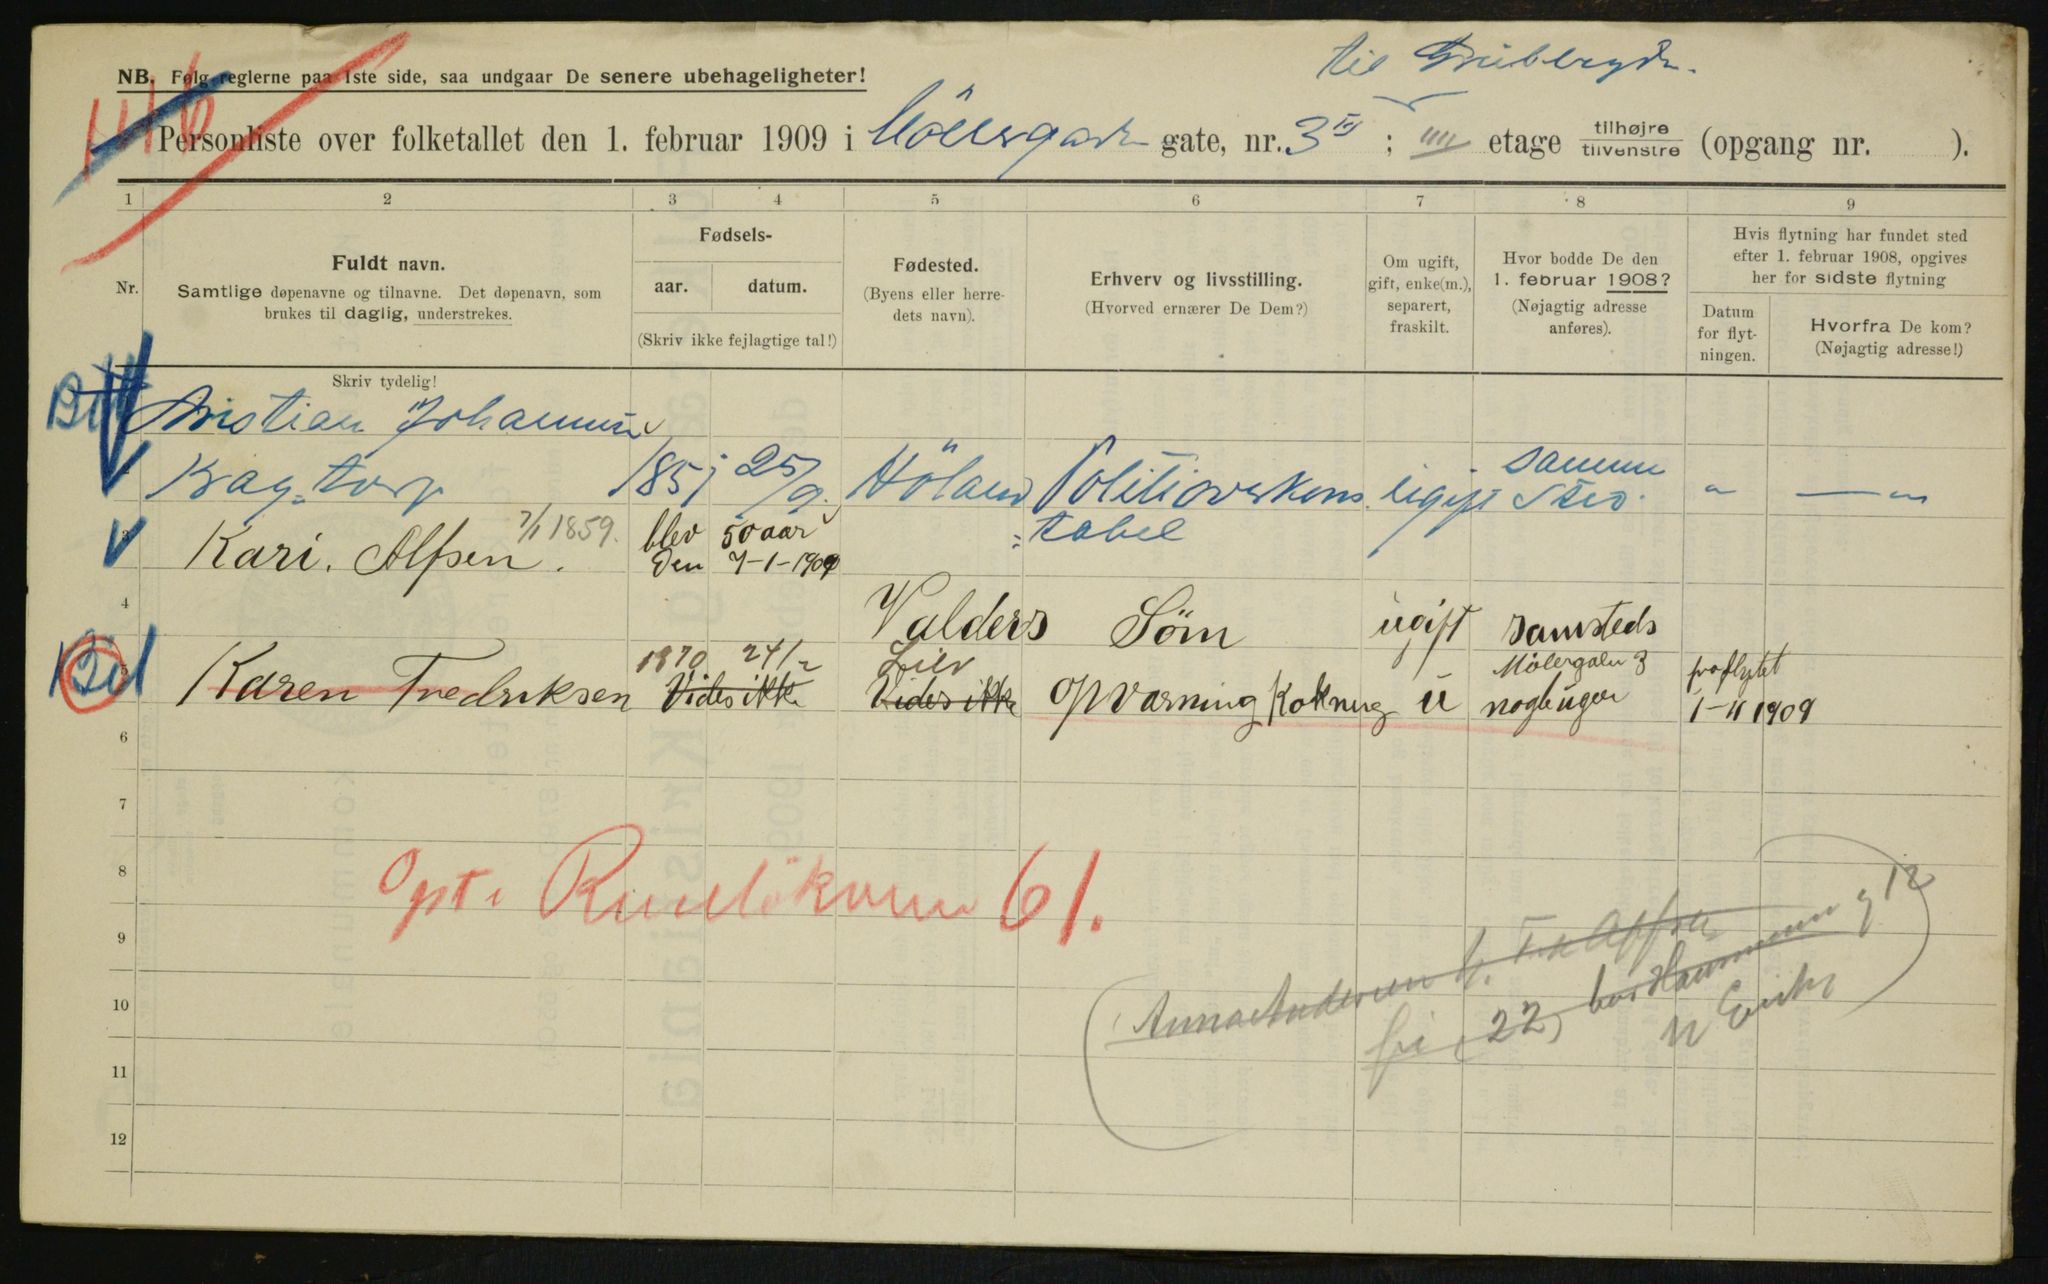 til
NB. Følg reglerne paa 1ste side, saa undgaar De senere ubehageligheter!
Personliste over folketallet den 1. februar 1909 i Möllergaden gate, nr. 3 III ; IIII etage tilhøjre tilvenstre (opgang nr. ).
1 2 3 4 5 6 7 8 9
Nr.
Fuldt navn.
Samtlige døpenavne og tilnavne. Det døpenavn, som
brukes til daglig, understrekes.
Skriv tydelig!
Fødsels-
aar. datum.
(Skriv ikke fejlagtige tal!)
Fødested.
(Byens eller herre-
dets navn).
Erhverv og livsstilling.
(Hvorved ernærer De Dem?)
Om ugift,
gift, enke(m.),
separert,
fraskilt.
Hvor bodde De den
1. februar 1908?
(Nøjagtig adresse
anføres).
Hvis flytning har fundet sted
efter 1. februar 1908, opgives
her for sidste flytning
Datum
for flyt-
ningen.
Hvorfra De kom?
(Nøjagtig adresse!)
Kristian Johannus
Krag-torp 1851 25/9. Höland Politioverkons ugift samme Sted. " — "
= tabel
3 Kari. Alfsen. 7/1 1859. blev 50 aar
Den 7-1-1909
4 Valders Söm ugift samsteds
5 Karen Fredriksen 1870 24/12 Vides ikke Vides ikke opvarning Kokning u Mölergaten 3
nogle uger 1-11 1909
6
7
8
Opt. Ruselökveien 61.
9
10
Anna Andersen
22,
11
12